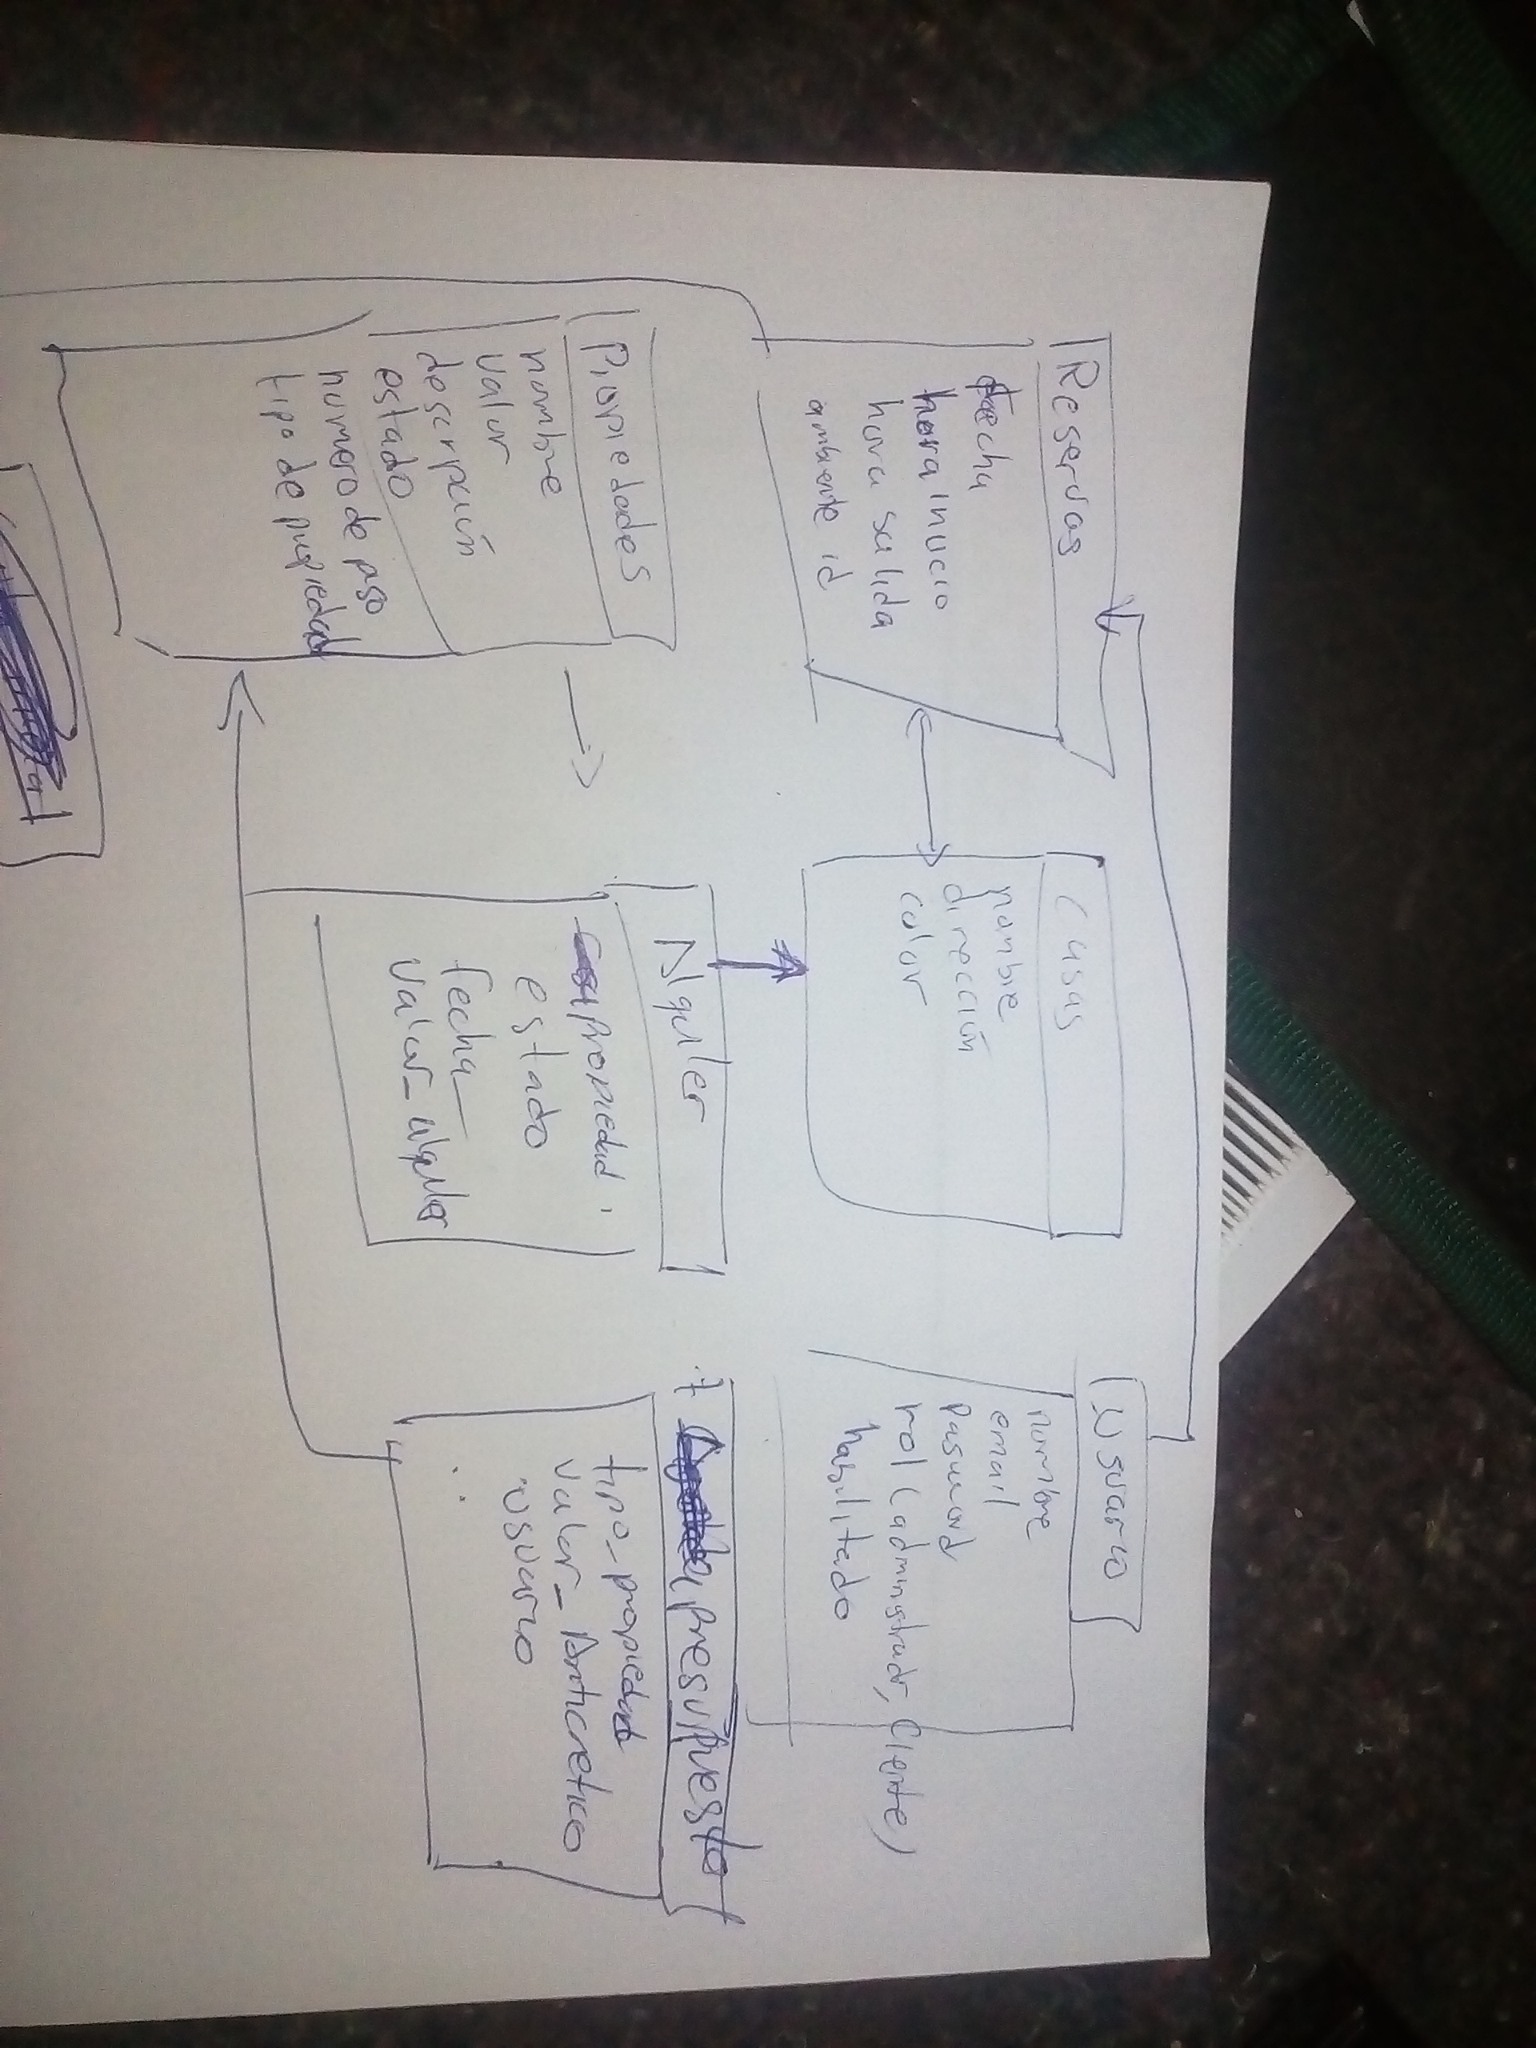 Reservas
fecha
hora inucio
hora salida
ambiente id
Casas
nombre
dirección
color
Usuario
nombre
email
Password
rol (administrador, Cliente)
habilitado
Propiedades
nombre
valor
descrpción
estado
numero de piso
tipo de propiedad
Alquiler
propiedad
estado
fecha_
valor_alquiler
presupuesto
tipo_propiedad
valor_Anticretico
usuario
..